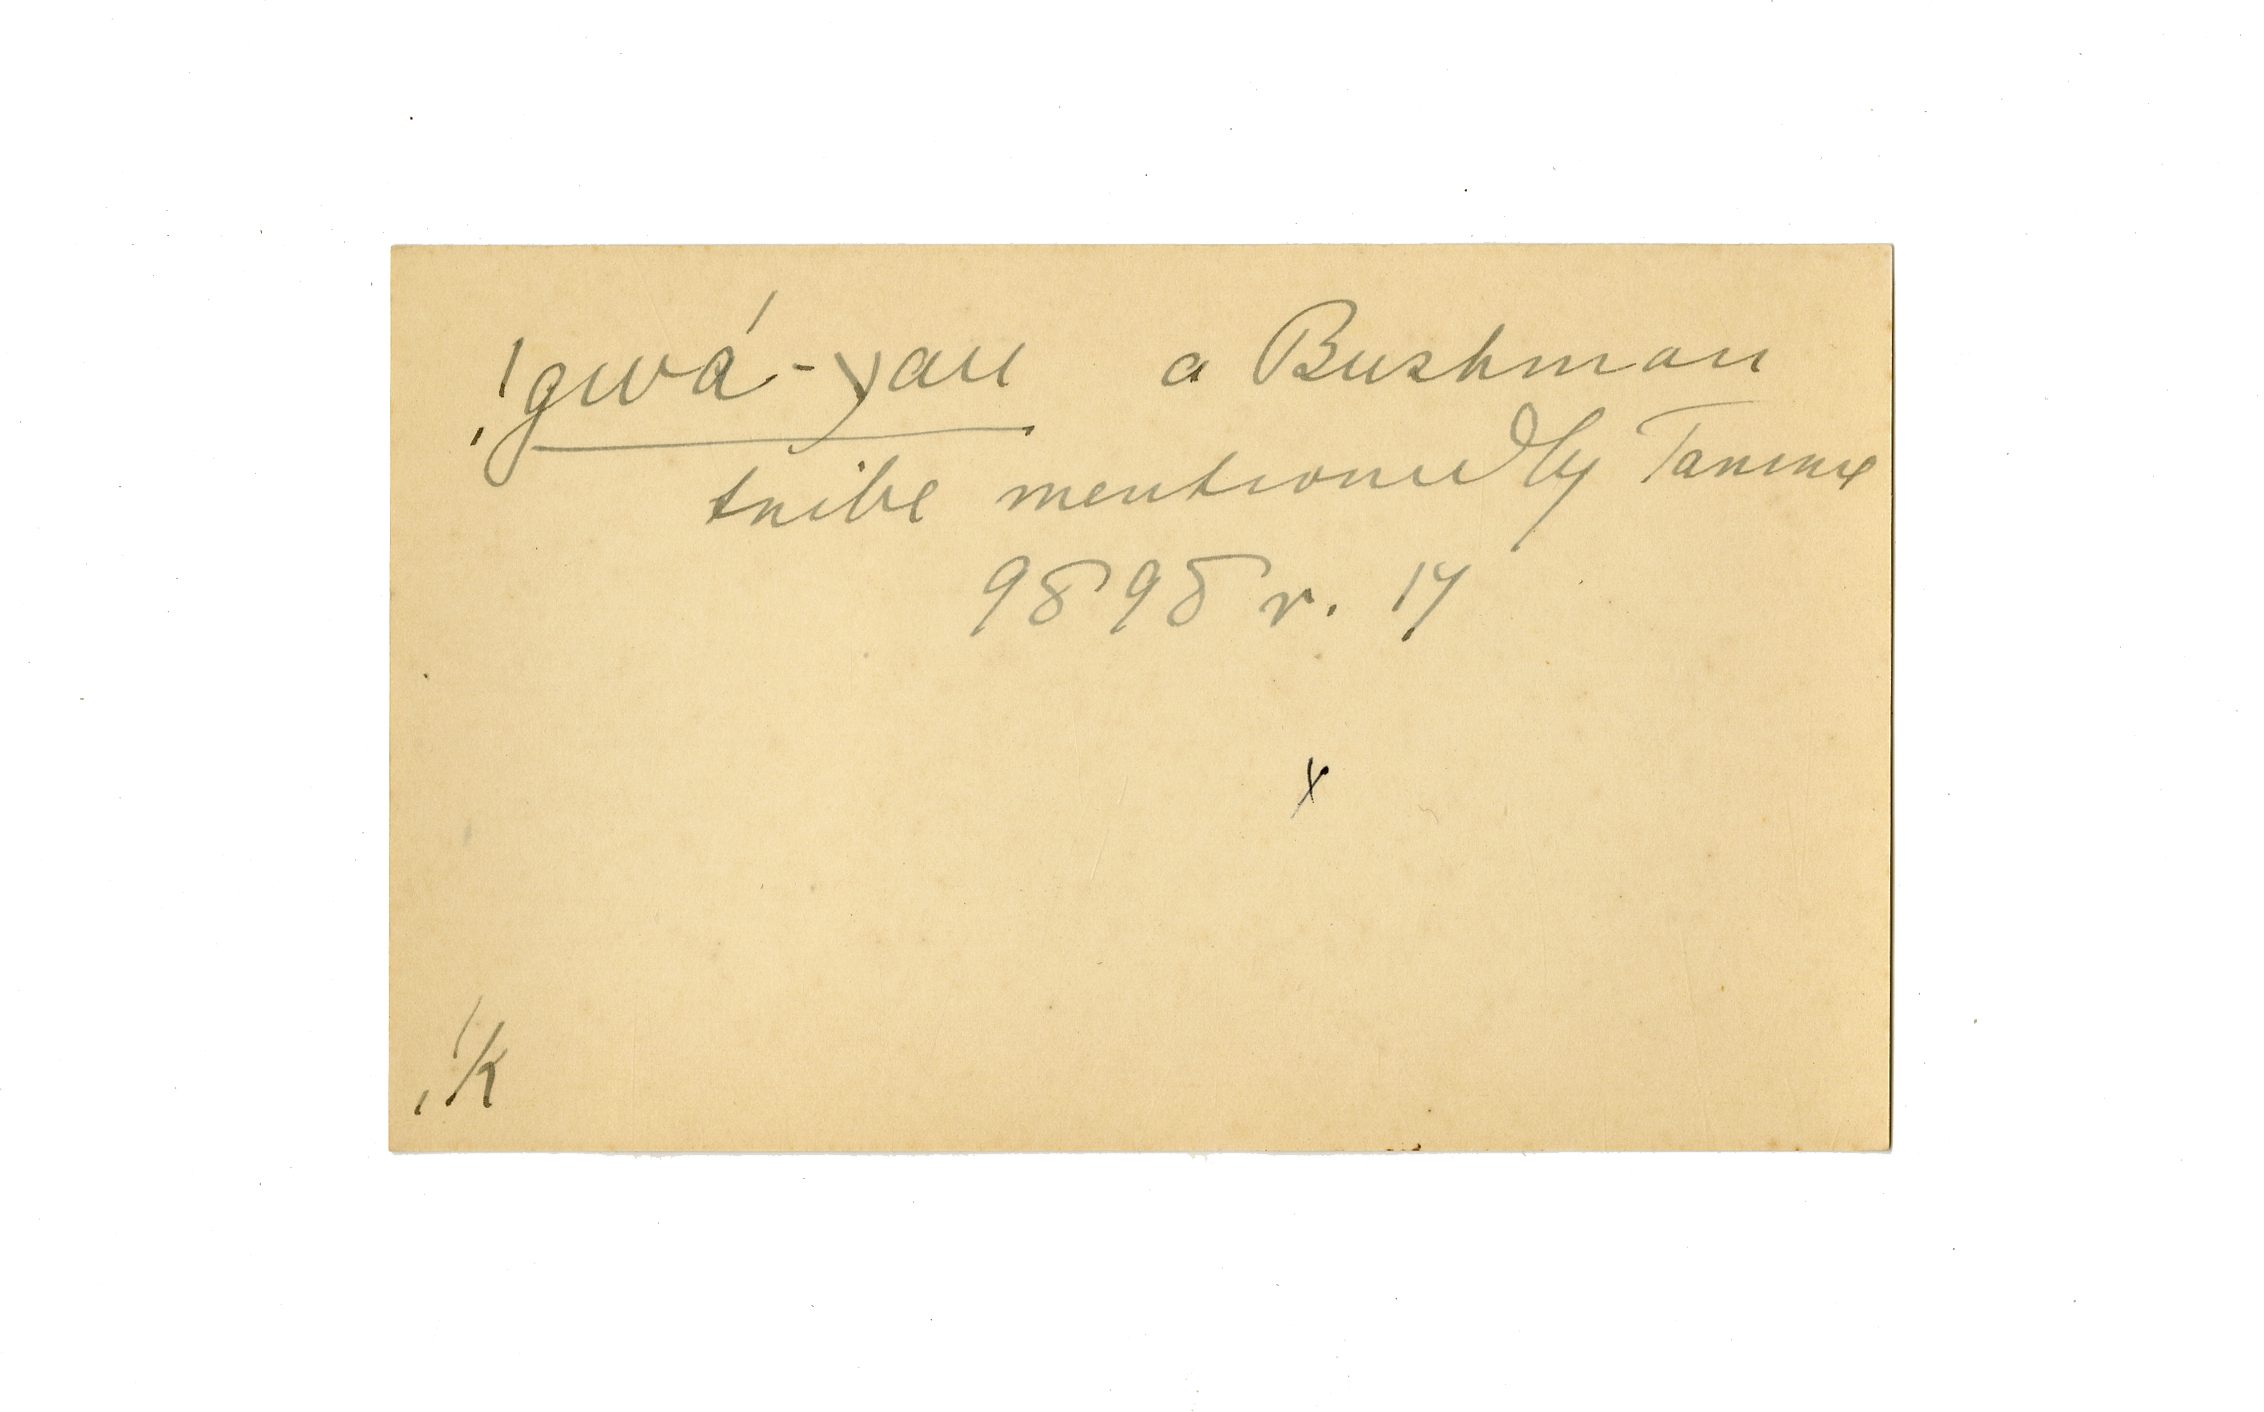 !gwá-yau a Bushman
tribe mentioned by Tamme
9898 r. 17
x
!k